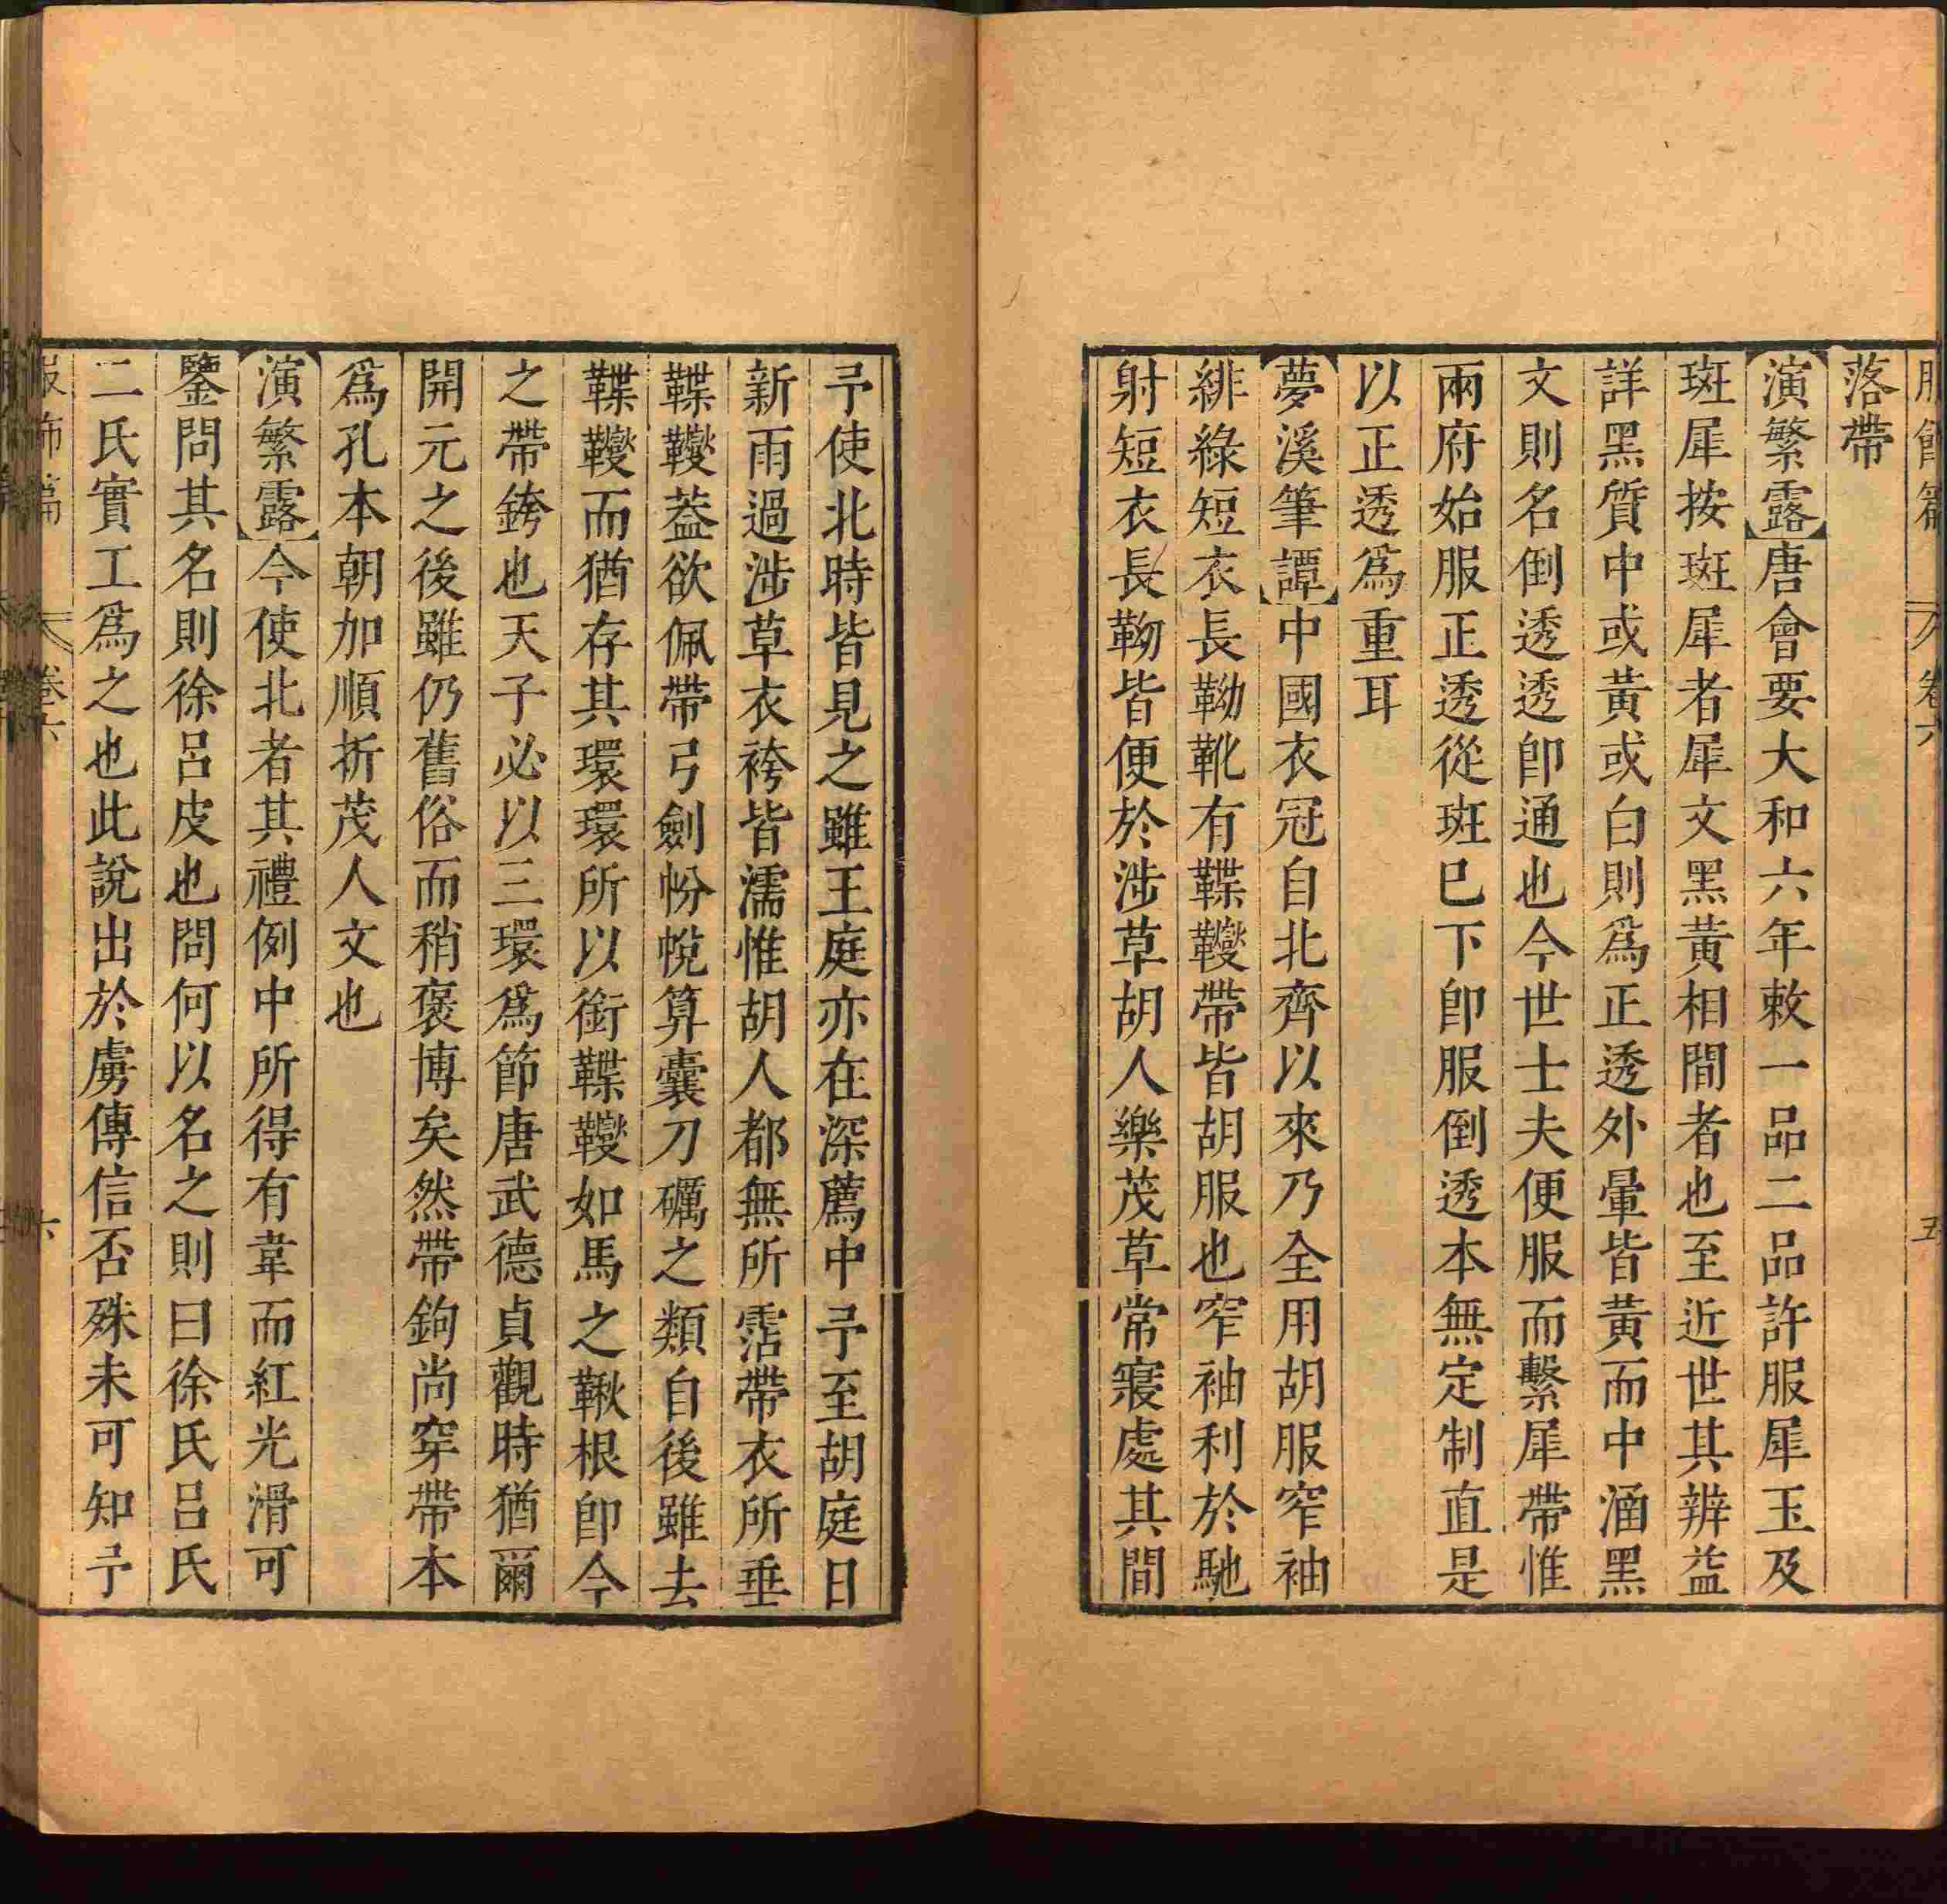 落帶
演繁露唐會要大和六年敕一品二品許服犀玉及
斑犀按斑犀者犀文黑黃相間者也至近世其辨益
詳黑質中或黃或白則爲正透外暈皆黃而中涵黑
文則名倒透透卽通也今世士夫便服而繫犀帶惟
兩府始服正透從斑巳下卽服倒透本無定制直是
以正透爲重耳
夢溪筆譚中國衣冠自北齊以來乃全用胡服窄袖
緋綠短衣長靿靴有鞢䪎帶皆胡服也窄袖利於馳
射短衣長靿皆便於涉草胡人樂茂草常寢處其間
予使北時皆見之雖王庭亦在深薦中予至胡庭日
新雨過涉草衣袴皆濡惟胡人都無所霑帶衣所垂
鞢䪎葢欲佩帶弓劍帉帨算囊刀礪之類自後雖去
鞢䪎而猶存其環環所以銜鞢䪎如馬之鞦根卽今
之帶銙也天子必以三環爲節唐武德貞觀時猶爾
開元之後雖仍舊俗而稍褒博矣然帶鉤尚穿帶本
爲孔本朝加順折茂人文也
演繁露今使北者其禮例中所得有韋而紅光滑可
鑒問其名則徐呂皮也問何以名之則曰徐氏呂氏
二氏實工爲之也此說出於虜傳信否殊未可知予
卷六
六